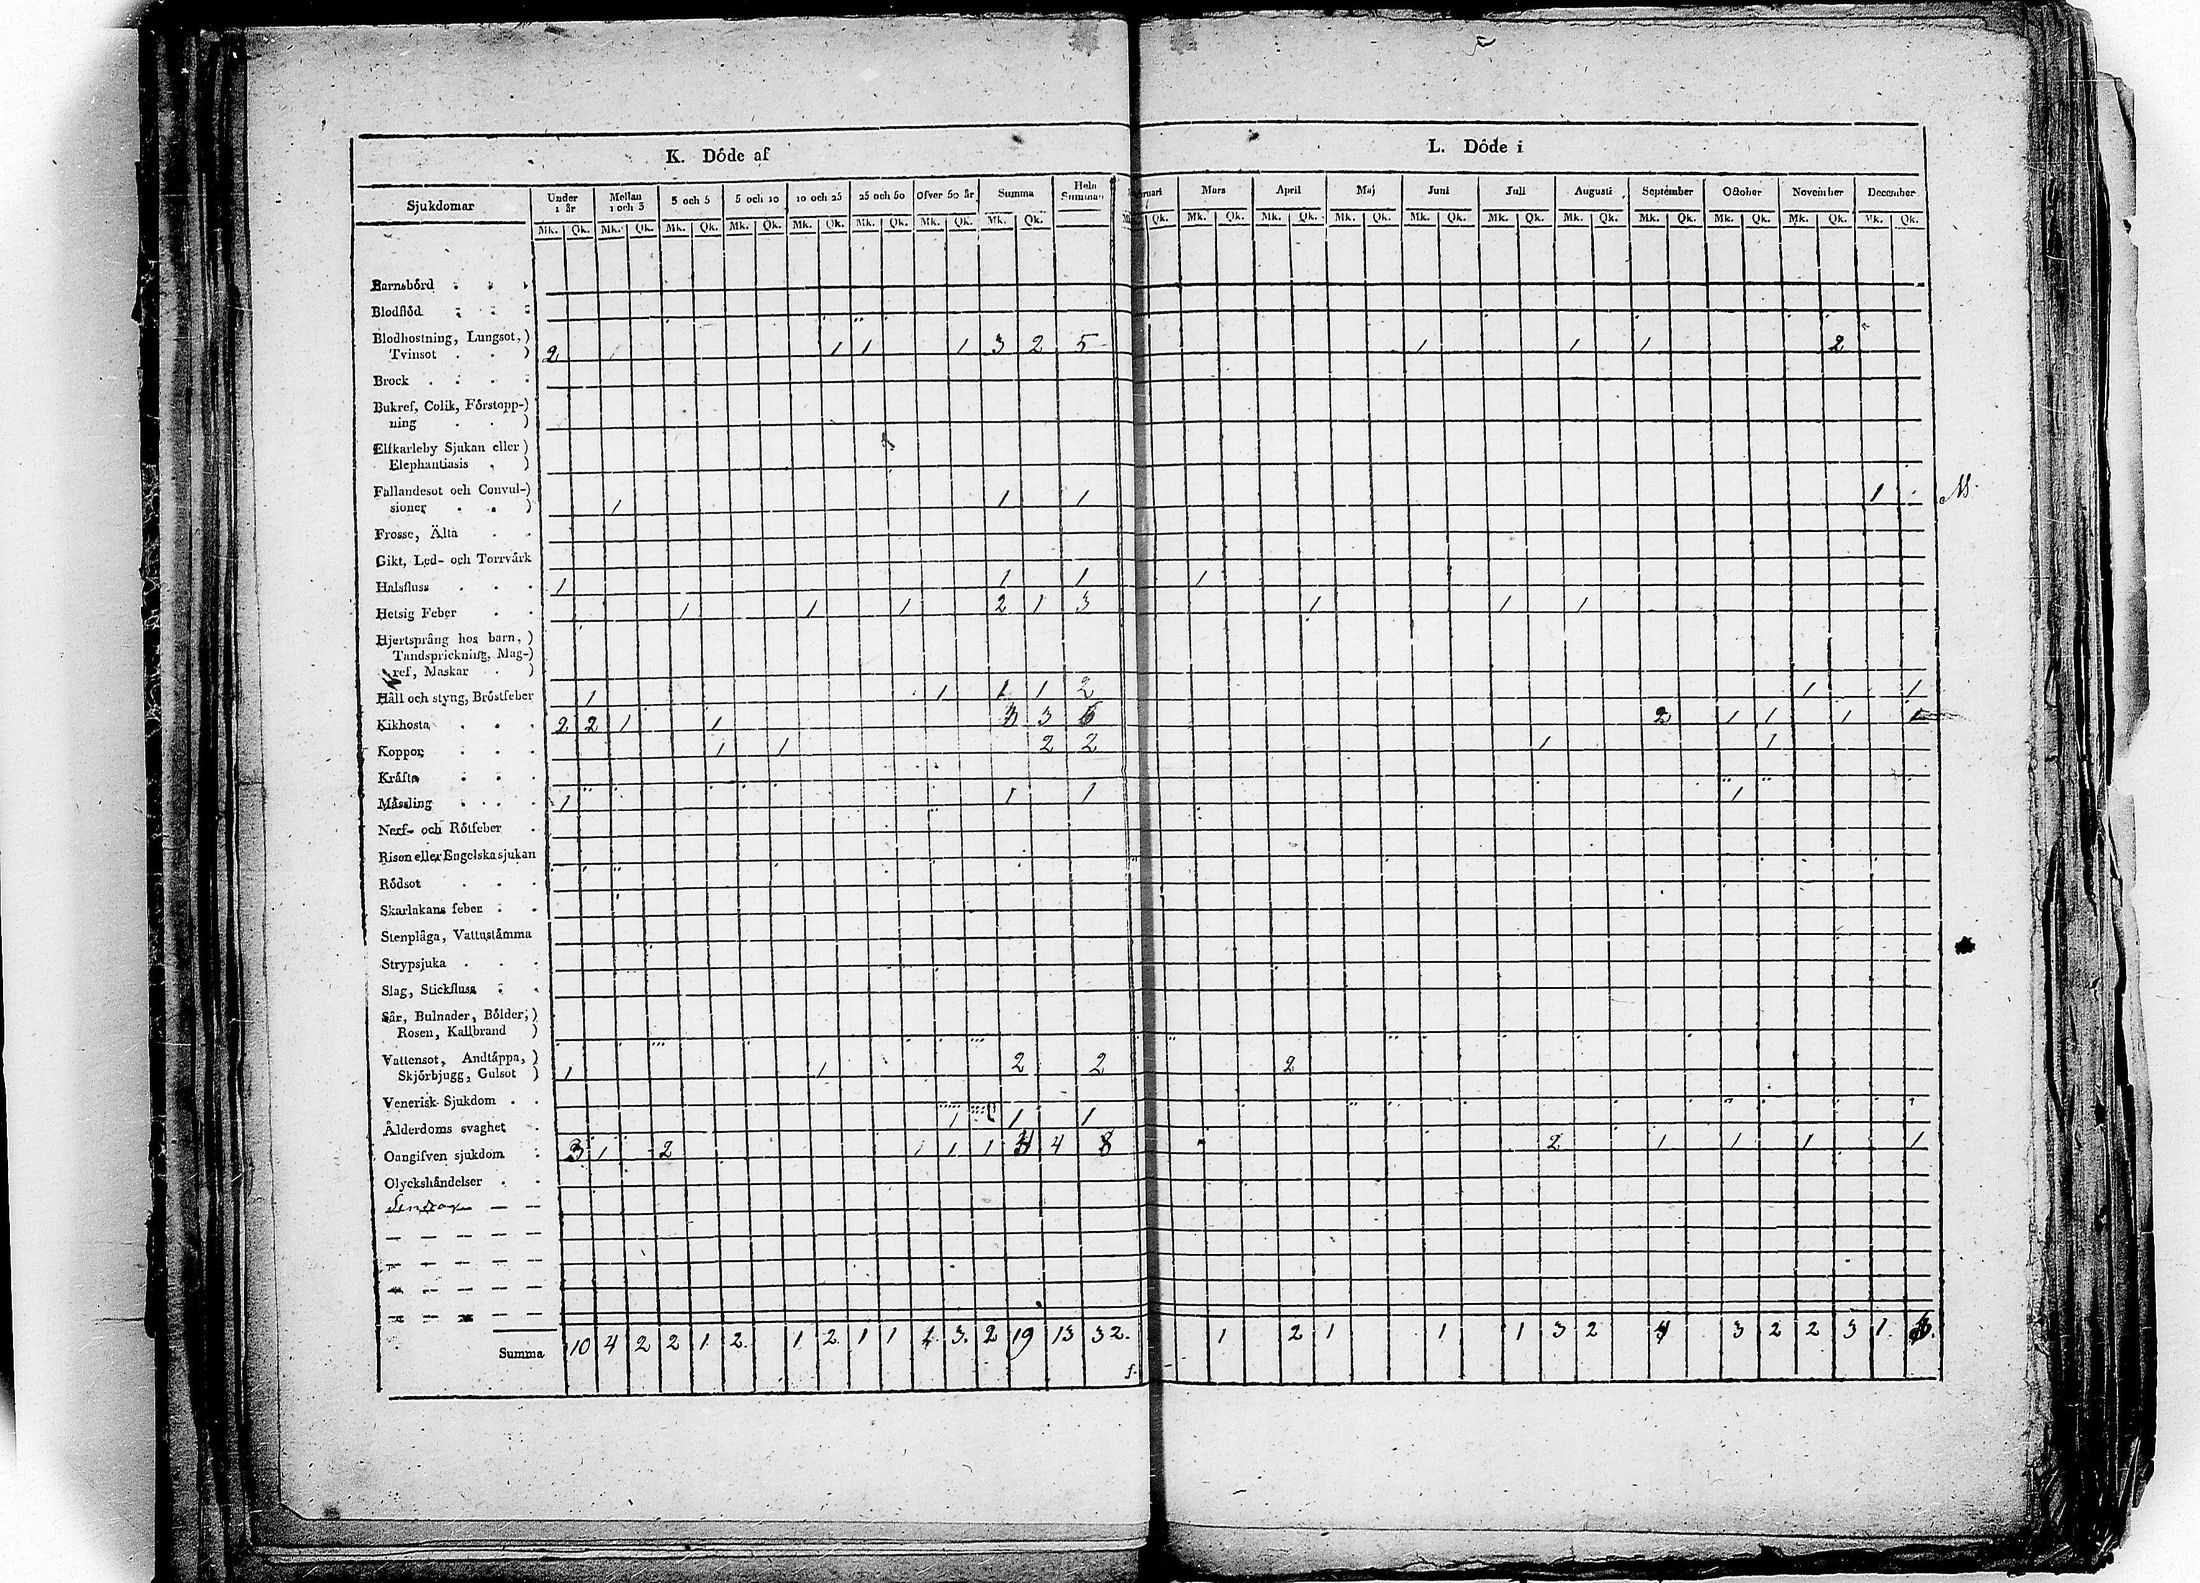 K. Döde af L. Döde i
Sjukdomar Under 1 år Mellan 1 och 3 3 och 5 5 och 10 10 och 25 25 och 50 Öfver 50 år Summa Hela Summan bruari Mars April Maj Juni Juli Augusti September October November December
Mk. Qk. Mk. Qk. Mk. Qk. Mk. Qk. Mk. Qk. Mk. Qk. Mk. Qk. Mk. Qk. Qk. Mk. Qk. Mk. Qk. Mk. Qk. Mk. Qk. Mk. Qk. Mk. Qk. Mk. Qk. Mk. Qk. Mk. Qk. Mk. Qk.
Barnsbörd
Blodflöd
Blodhostning, Lungsot,)
Tvinsot ) 2 1 1 1 3 2 5 1 1 1 2
Brock
Bukref, Colik, Förstopp-)
ning )
Elfkarleby Sjukan eller)
Elephantiasis )
Fallandesot och Convul-)
sioner ) 1 1 1 1
Frosse, Älta
Gikt, Led- och Torrvärk
Halsfluss 1 1 1 1
Hetsig Feber 1 1 1 2 1 3 1 1 1
Hjertsprång hos barn,)
Tandsprickning, Mag-)
ref, Maskar )
Håll och styng, Bröstfeber 1 1 1 1 2 1 1
Kikhosta 2 2 1 1 3 2 1 1 1
Koppor 1 1 2 2 1 1
Kräfta
Mässling 1 1 1 1
Nerf- och Rötfeber
Risen eller Engelska sjukan
Rödsot
Skarlakans feber
Stenplåga, Vattustämma
Strypsjuka
Slag, Stickfluss
Sår, Bulnader, Bölder,)
Rosen, Kallbrand )
Vattensot, Andtäppa,)
Skjörbjugg, Gulsot ) 1 1 2 2 2
Venerisk Sjukdom
Ålderdoms svaghet 1 1 1
Oangifven sjukdom 3 1 2 1 1 1 4 8 2 1 1 1 1
Olyckshändelser
Summa 10 4 2 2 1 2 1 2 1 1 1 3 2 19 13 32. 1 2 1 1 1 3 2 4 3 2 2 3 1